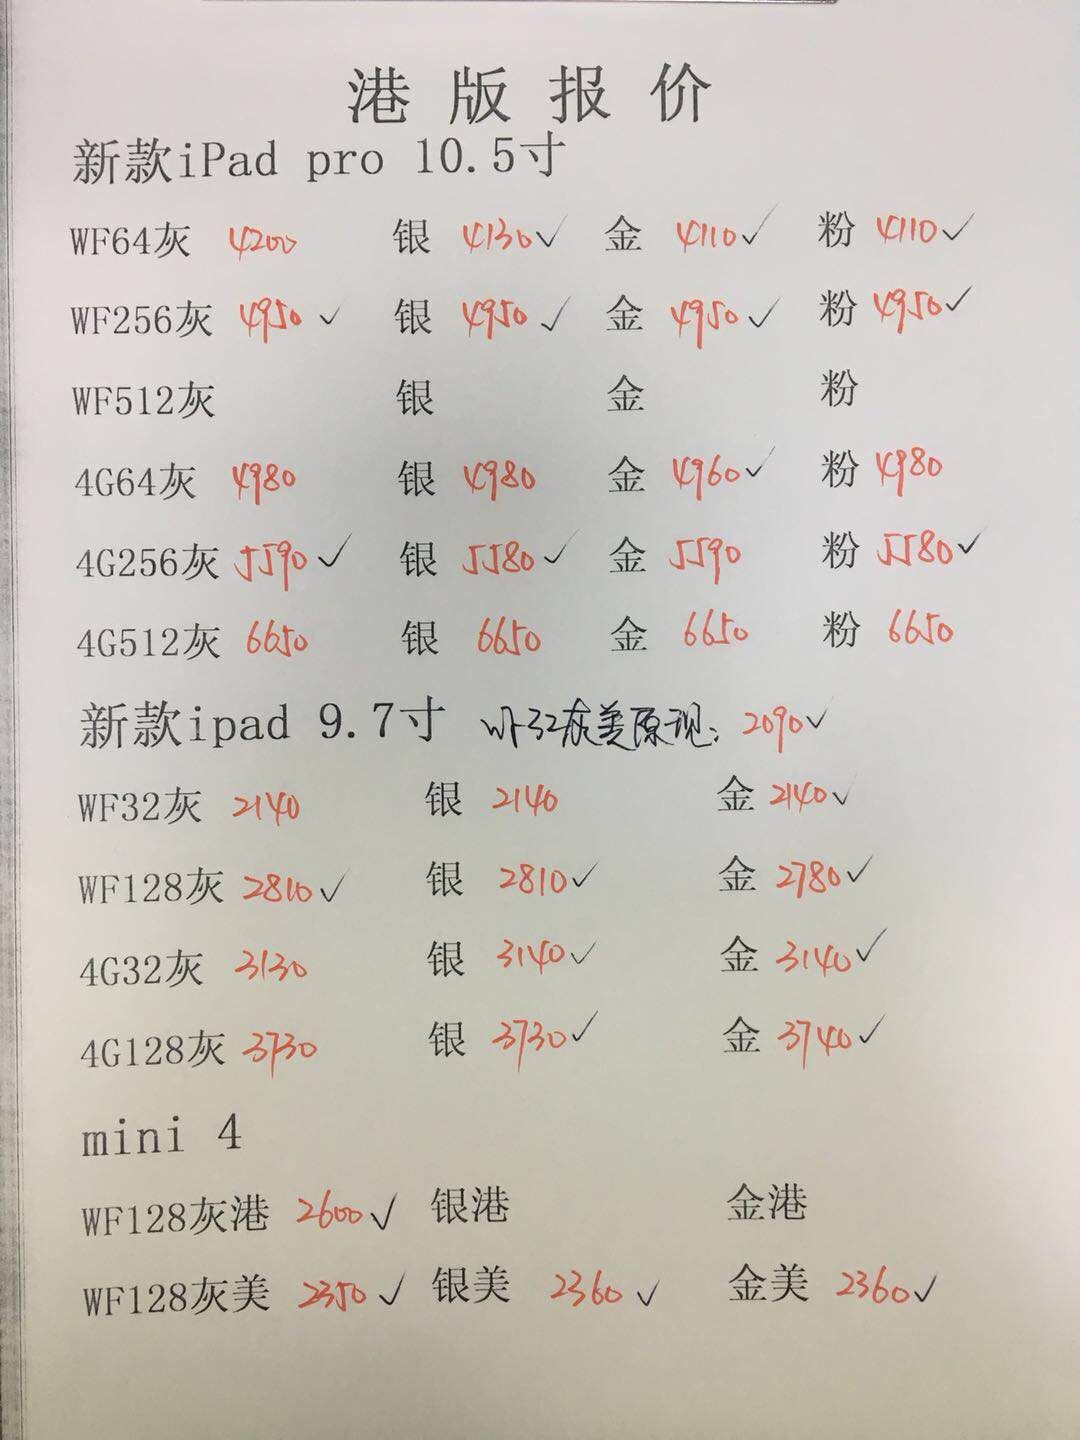 港版报价
新款iPad pro 10.5寸
WF64灰 4200 银 4130✓ 金 4110✓ 粉 4110✓
WF256灰 4950✓ 银 4950✓ 金 4950✓ 粉 4950✓
WF512灰 银 金 粉
4G64灰 4980 银 4980 金 4960✓ 粉 4980
4G256灰 5590✓ 银 5580✓ 金 5590 粉 5580✓
4G512灰 6650 银 6650 金 6650 粉 6650
新款ipad 9.7寸 WF32灰美原现: 2090✓
WF32灰 2140 银 2140 金 2140✓
WF128灰 2810✓ 银 2810✓ 金 2780✓
4G32灰 3130 银 3140✓ 金 3140✓
4G128灰 3730 银 3730✓ 金 3740✓
mini 4
WF128灰港 2600✓ 银港 金港
WF128灰美 2350✓ 银美 2360✓ 金美 2360✓